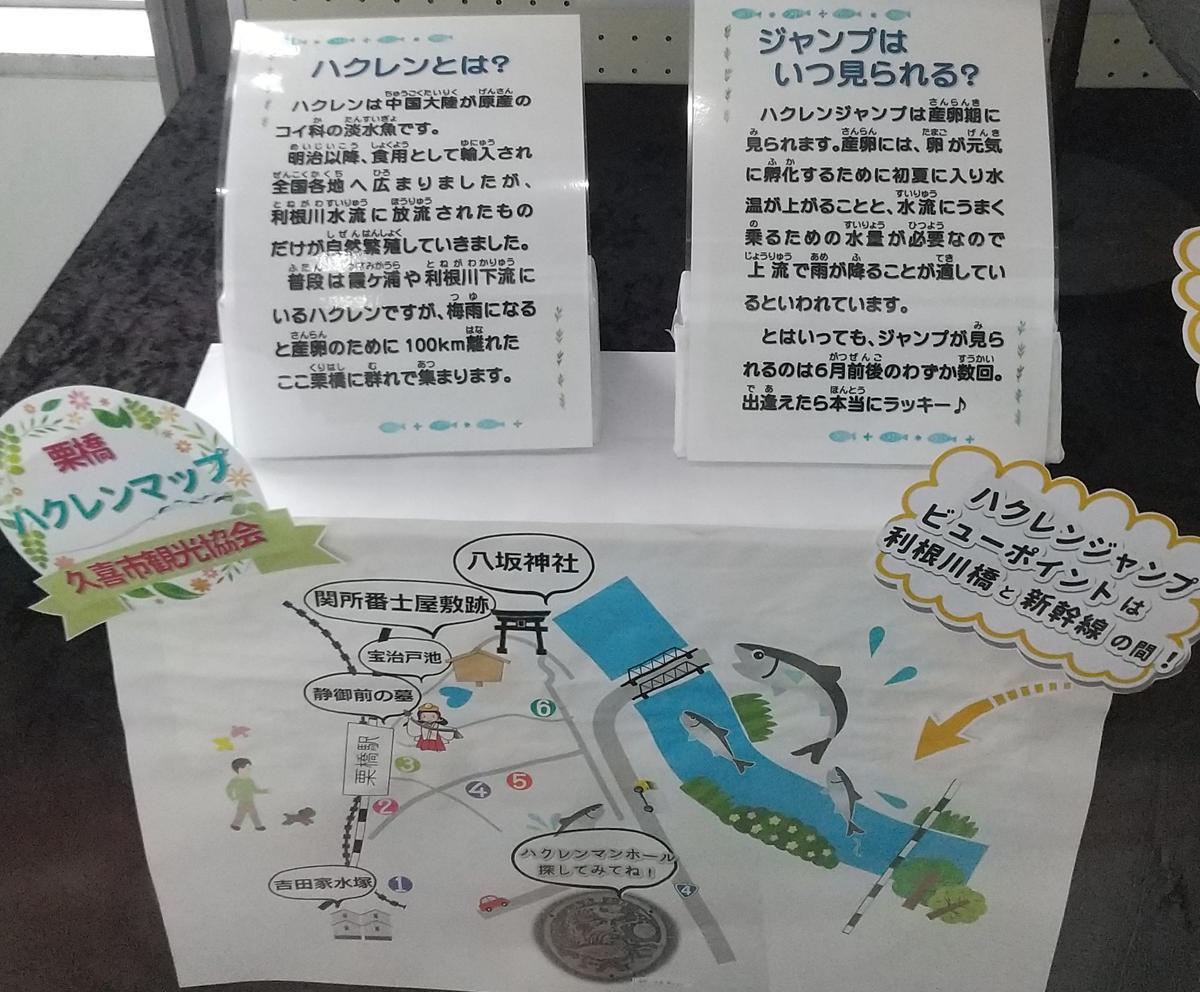 ハクレンとは?
ハクレンは中国大陸が原産の
コイ科の淡水魚です。
明治以降、食用として輸入され
全国各地へ広まりましたが、
利根川水流に放流されたもの
だけが自然繁殖していきました。
普段は霞ケ浦や利根川下流に
いるハクレンですが、梅雨になる
と産卵のために100km離れた
ここ栗橋に群れで集まります。
ジャンプは
いつ見られる?
ハクレンジャンプは産卵期に
見られます。産卵には、卵が元気
に孵化するために初夏に入り水
温が上がることと、水流にうまく
乗るための水量が必要なので
上流で雨が降ることが適してい
るといわれています。
とはいっても、ジャンプが見ら
れるのは6月前後のわずか数回。
出逢えたら本当にラッキー♪
栗橋
ハクレンマップ
久喜市観光協会
ハクレンジャンプ
ビューポイントは
利根川橋と新幹線の間!
八坂神社
関所番士屋敷跡
宝治戸池
静御前の墓
栗橋駅
吉田家水塚
1
2
3
4
5
6
ハクレンマンホール
探してみてね!
4